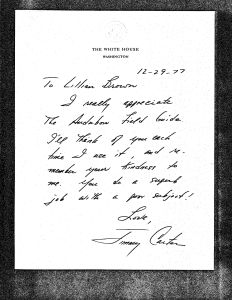 THE WHITE HOUSE
WASHINGTON
12-29-77
To Lillian Brown
I really appreciate
the Audubon Field Guide
I'll think of you each
time I use it, and re-
member your kindness to
me. You do a superb
job with a poor subject!
Love,
Jimmy Carter